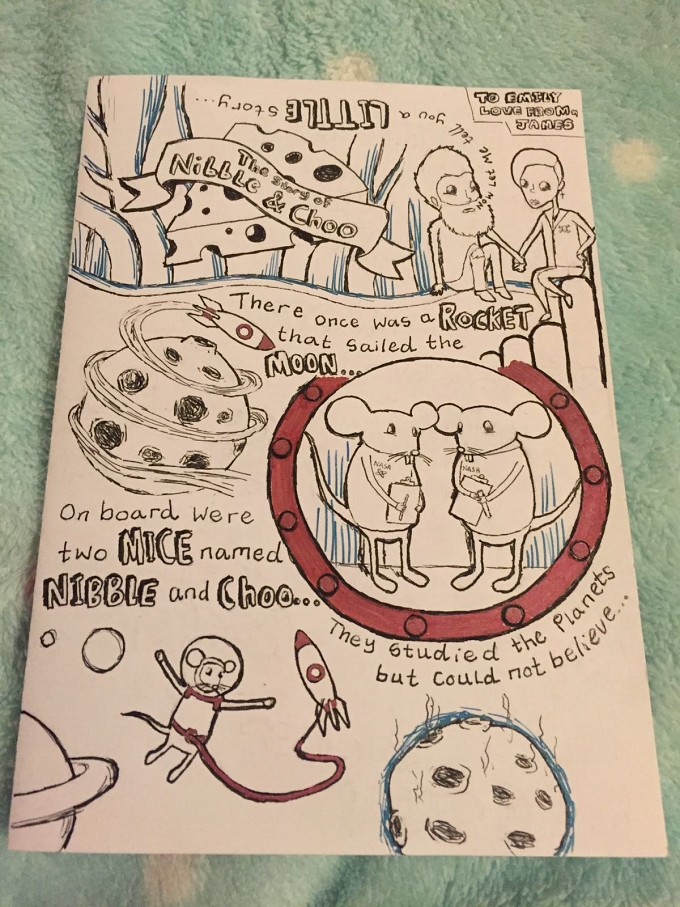 TO EMILY
LOVE FROM,
JAMES
NOW LET ME tell you a LITTLE Story...
The Story of
NibbLe & Choo
There once was a ROCKET
that sailed the
MOON...
NASA
NASA
On board were
two MICE named
NIBBLE and Choo...
They studied the Planets
but could not believe...